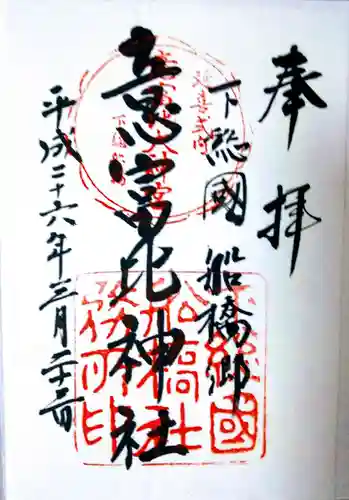 奉拝
下総國船橋郷
意富比神社
平成二十六年三月二十二日